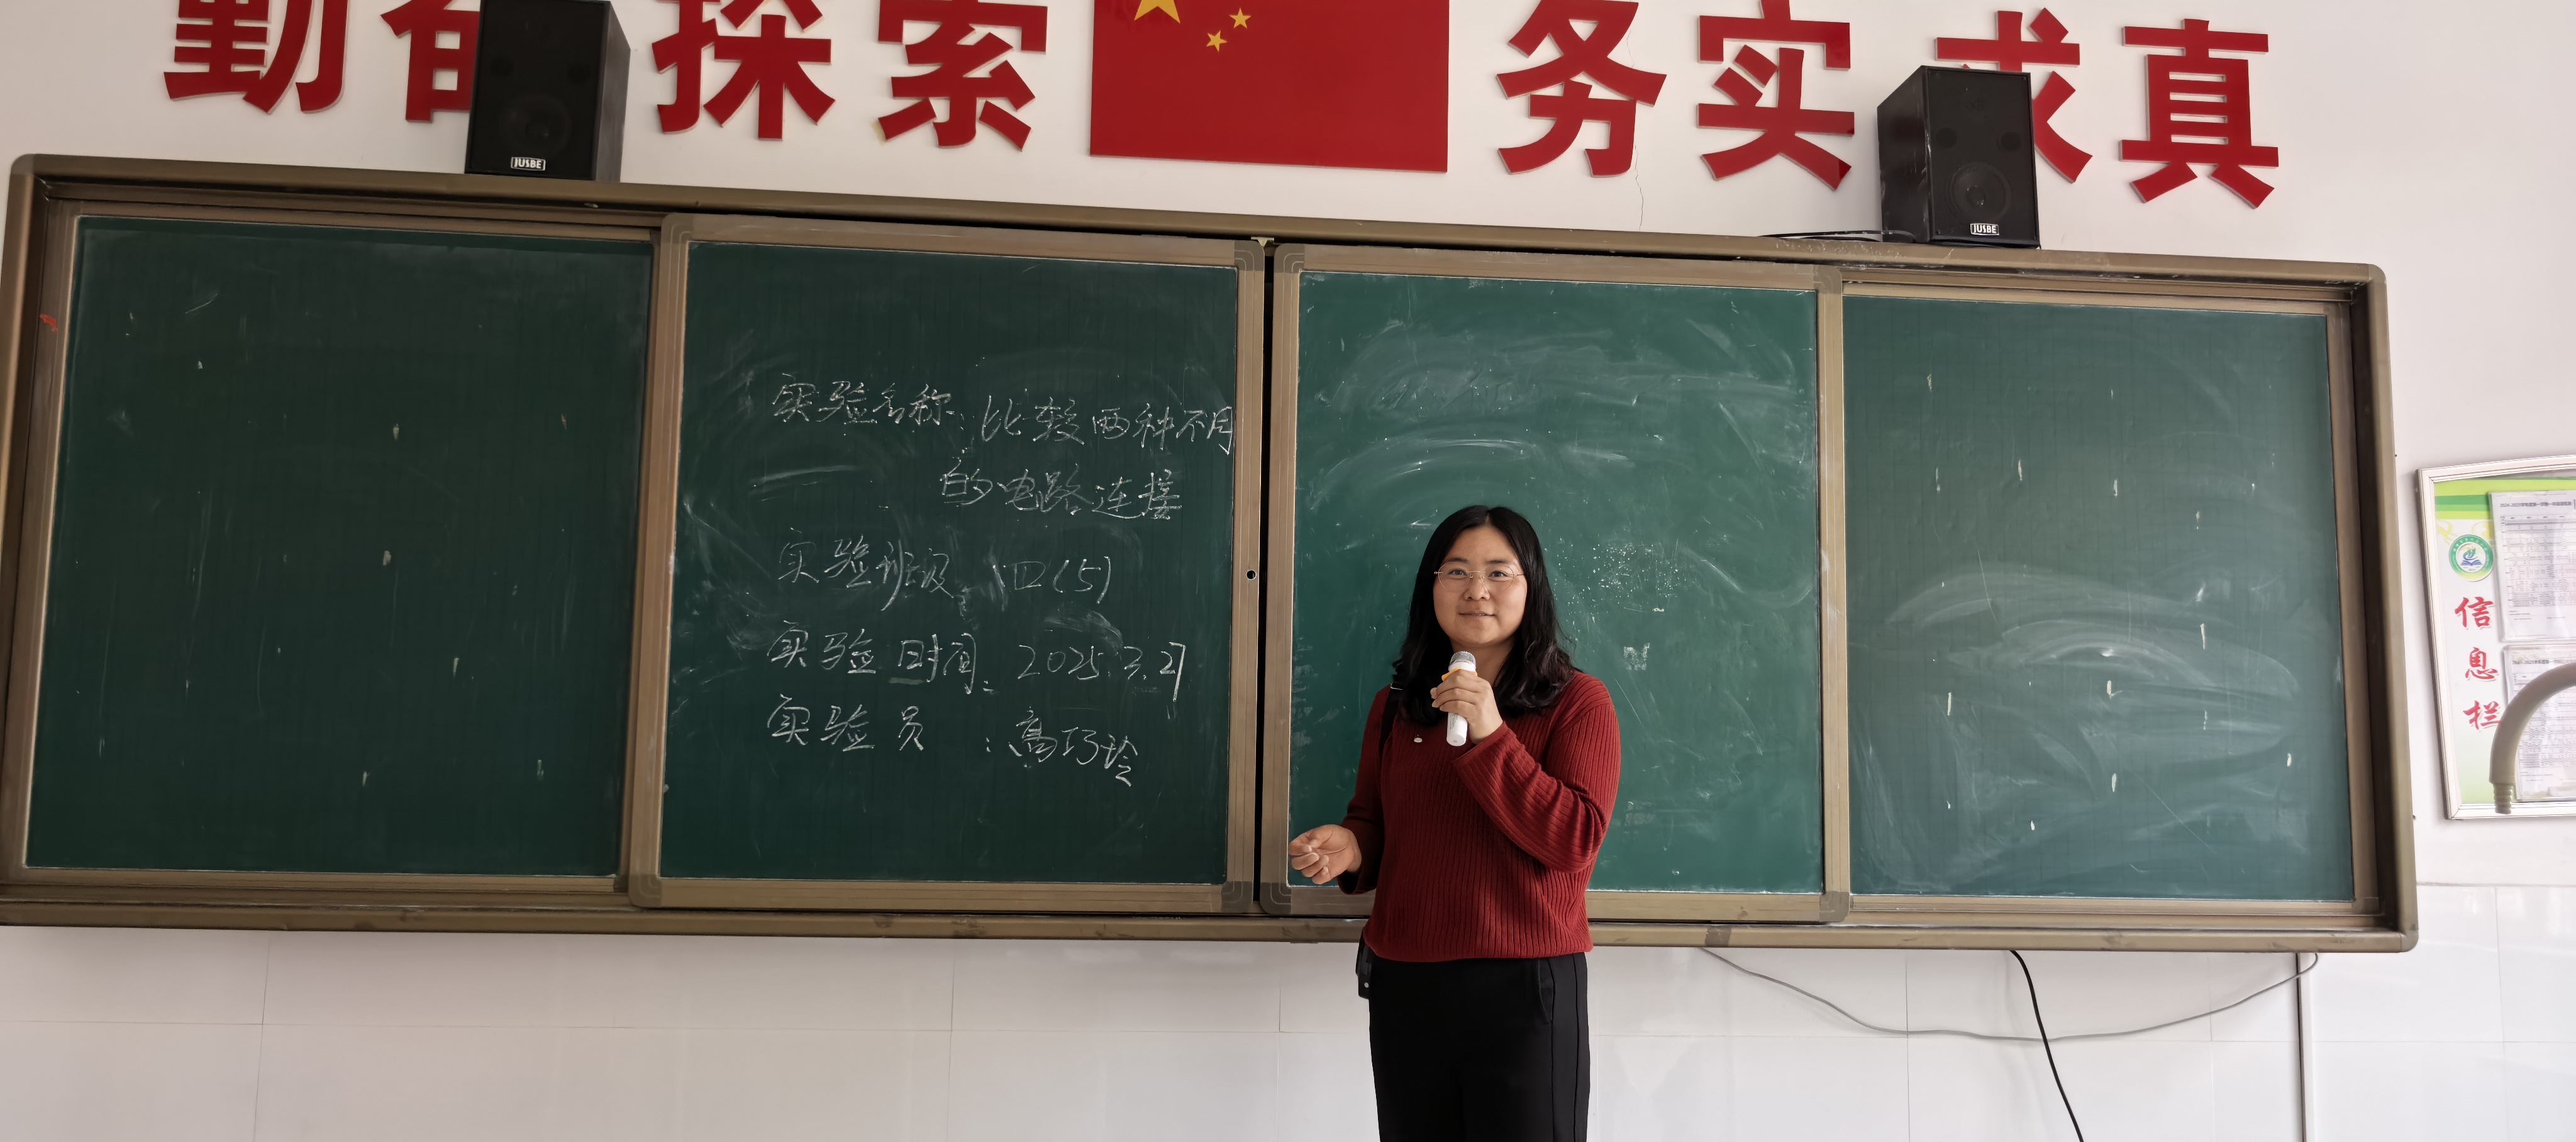 勤奋 探索 务实 求真
JUSBE
JUSBE
实验名称:比较两种不同
的电路连接
实验班级:四(5)
实验时间:2025.3.27
实验员:高巧玲
信息栏